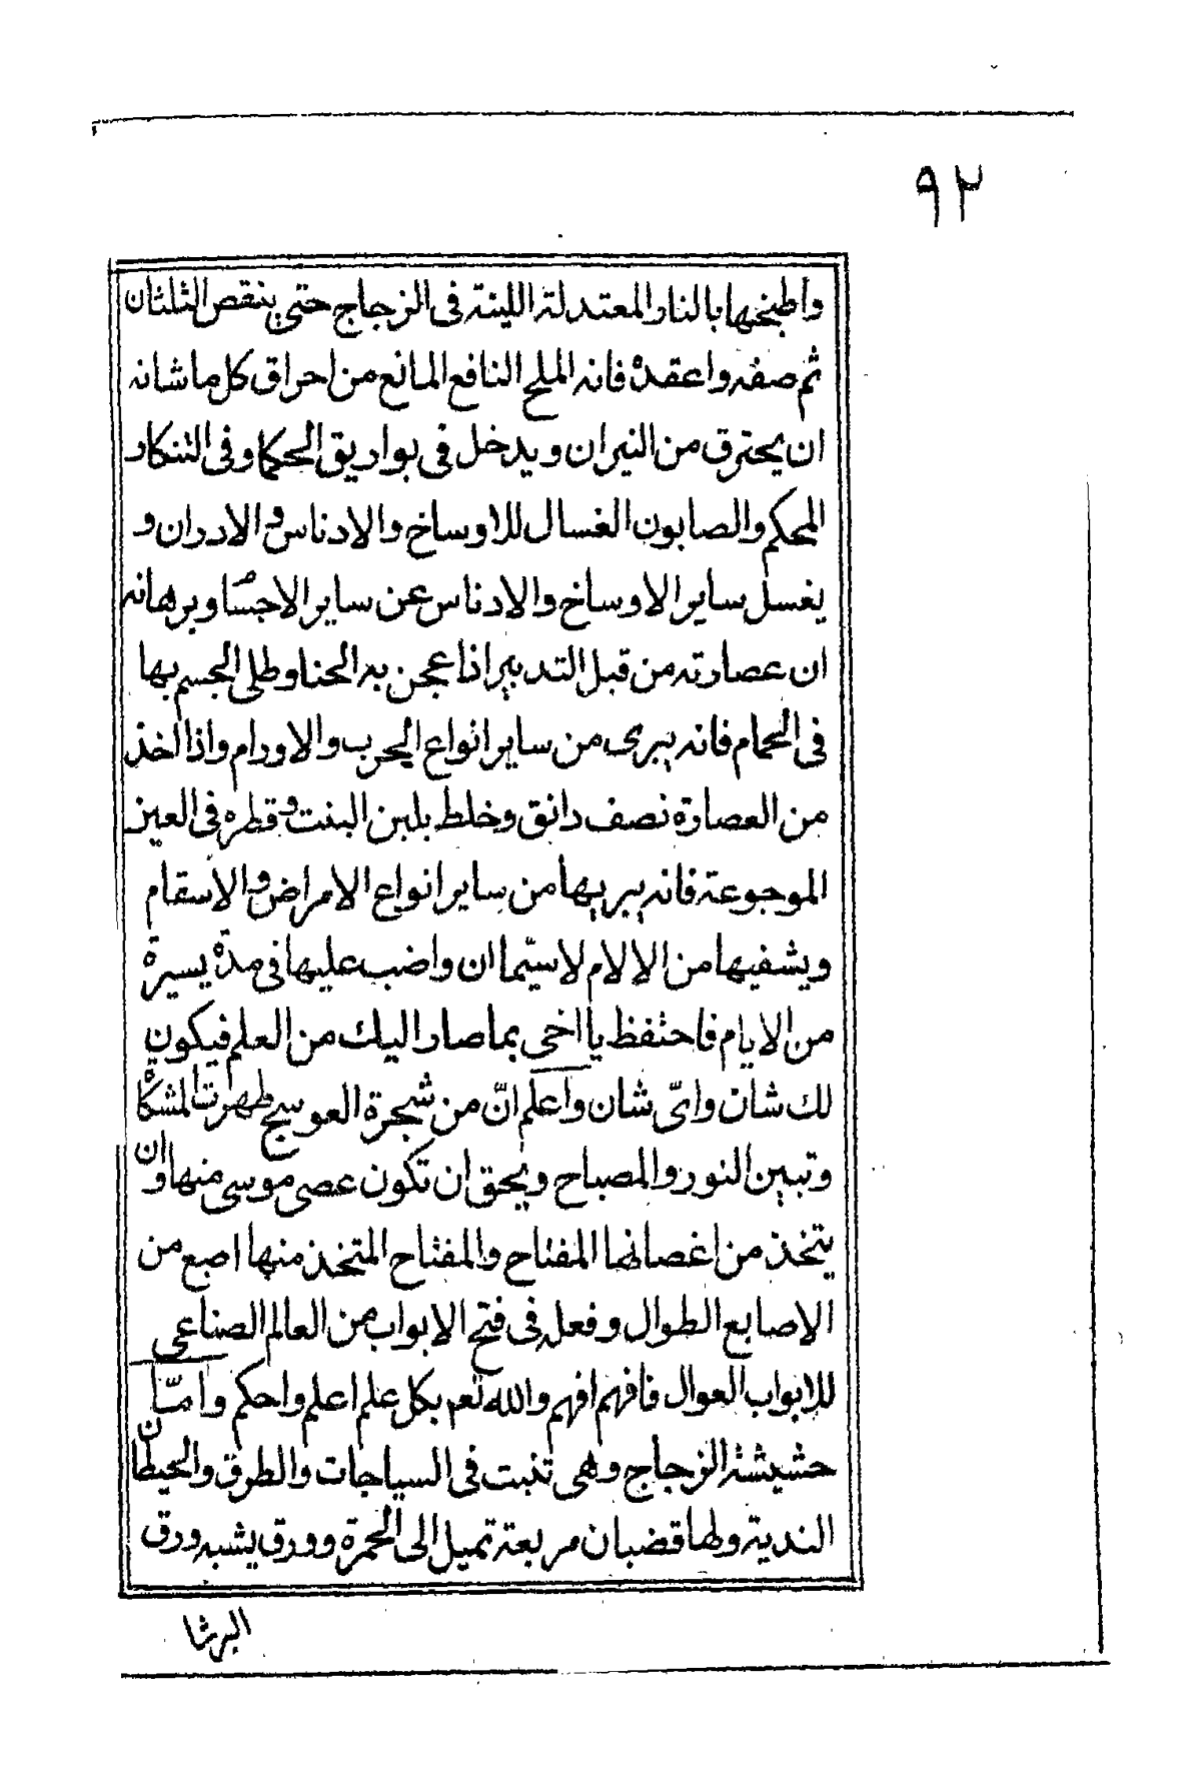 ٩٢
واطبخها بالنار المعتدلة اللينة فى الزجاج حتى ينقص الثلثان
ثم صفه واعقده فانه الملح النافع المانع من احراق كل ما شانه
ان يحترق من النيران ويدخل فى بواريق الحكما وفى التنكار
المحكم والصابون الغسال للاوساخ والادناس والادران و
يغسل ساير الاوساخ والادناس عن ساير الاجسام وبرهانه
ان عصارته من قبل التدبير اذا عجن به الحنا وطلى الجسم بها
فى الحمام فانه يبرى من ساير انواع الجرب والاورام واذا اخذ
من العصارة نصف دانق وخلط بلبن البنت وقطره فى العين
الموجوعة فانه يبريها من ساير انواع الامراض والاسقام
ويشفيها من الالام لاسيّما ان واضب عليها فى مدة يسيرة
من الايام فاحتفظ يا اخى بما صار اليك من العلم فيكون
لك شان واىّ شان واعلم انّ من شجرة العوسج ظهرت المشكاة
وتبين النور والمصباح ويحق ان تكون عصى موسى منها وان
يتخذ من اغصانها المفتاح والمفتاح المتخذ منها اصبع من
الاصابع الطوال وفعله فى فتح الابواب من العالم الصناعى
للابواب العوال فافهم افهم والله تعم بكل علم اعلم واحكم وامّا
حشيشة الزجاج وهى تنبت فى السياجات والطرق والحيطان
الندية ولها قضبان مربعة تميل الى الحمرة وورق يشبه ورق
البرشا